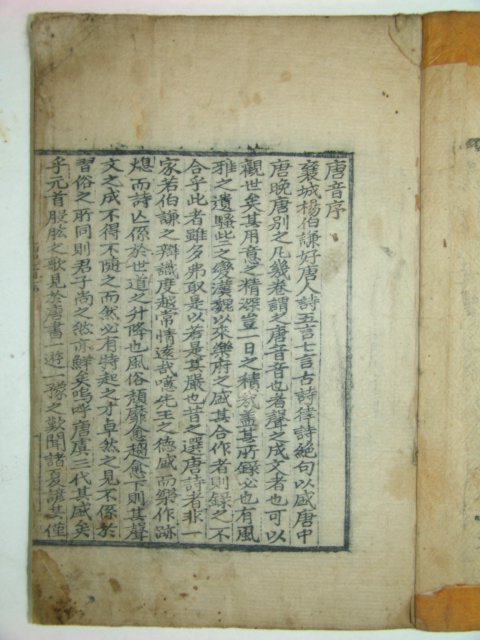 唐音序
襄城楊伯謙好唐人詩五言七言古詩律詩絶句以盛唐中
唐晚唐别之凡幾卷謂之唐音音也者聲之成文者也可以
觀世矣其用意之精深豈一日之積哉盖其所録必也有風
雅之遺騷些之變漢魏以來樂府之盛其合作者則録之不
合乎此者雖多弗取是以若是其嚴也昔之選唐詩者非一
家若伯謙之辨識度越常情遠哉嗟夫先王之德盛而樂作跡
熄而詩亾係於世道之升降也風俗頹靡愈趍愈下則其聲
文之成不得不隨之而然必有特起之才卓然之見不係於
習俗之所同則君子尚之然亦鮮矣嗚呼唐虞三代其盛矣
乎元首股肱之歌見於虞書一遊一豫之歎聞諸夏諺其僅